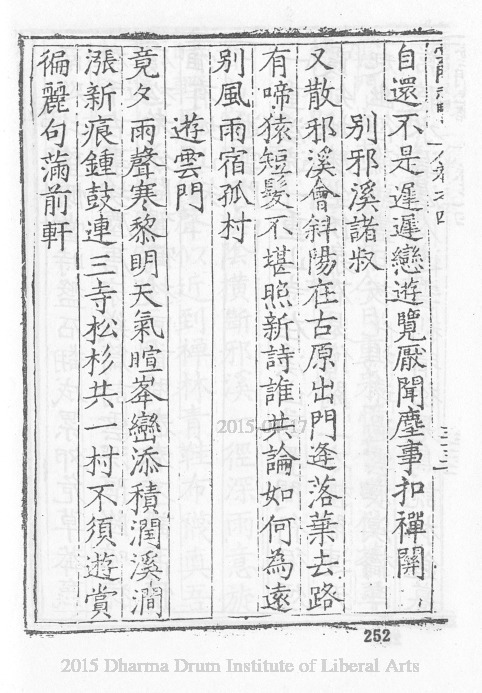 自還不是遲遲戀遊覽厭聞塵事扣禪關
別邪溪諸叔
又散邪溪會斜陽在古原出門逢落葉去路
有啼猿短髮不堪照新詩誰共論如何為遠
別風雨宿孤村
遊雲門
竟夕雨聲寒黎明天氣暄峯巒添積潤溪澗
漲新痕鍾鼓連三寺松杉共一村不須遊賞
徧麗句滿前軒
2015-06-17
252
2015 Dharma Drum Institute of Liberal Arts